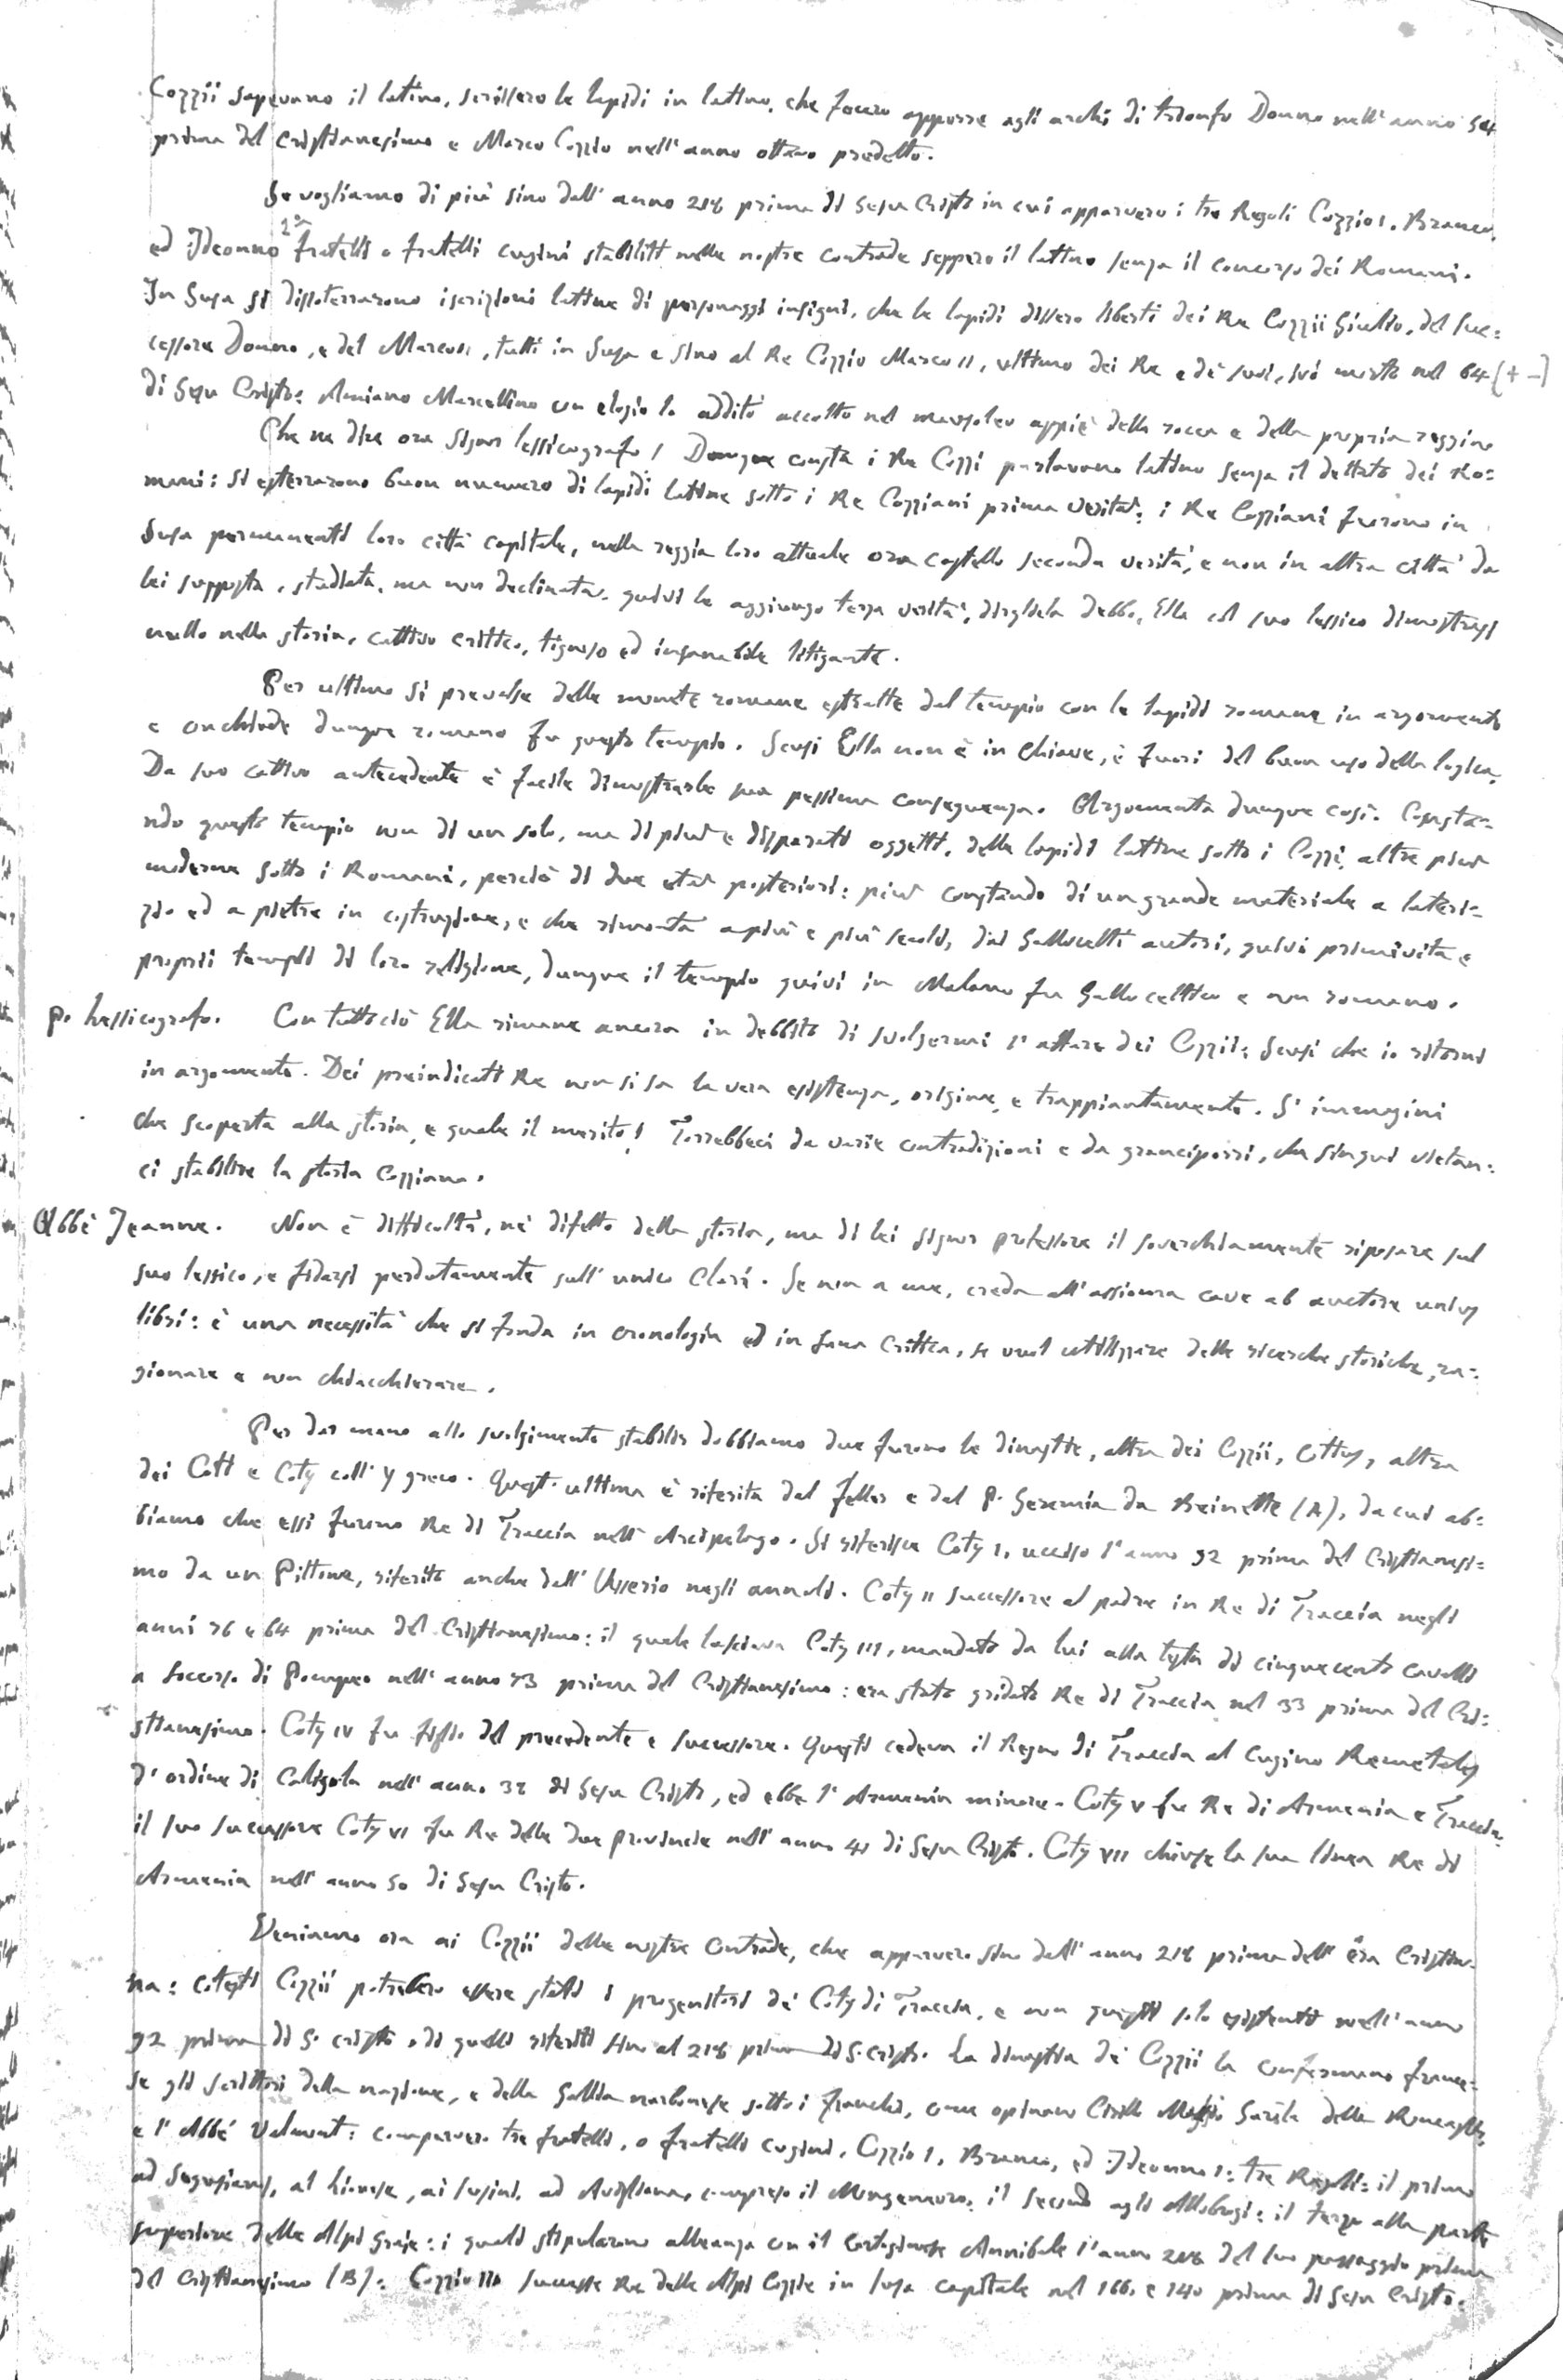 Cozzii sapevano il latino, scrissero le lapidi in latino, che fecero apporre agli archi di trionfo Donno nell' anno
prima del Cristianesimo e Marco Cozzio nell' anno ottavo predetto.
Se vogliamo di più sino dall' anno 218 prima di Gesu Cristo in cui apparvero i tre Regoli Cozzio I, Branco,
ed Ideonno 1° fratelli o fratelli cugini stabiliti nelle nostre contrade seppero il latino senza il concorso dei Romani.
In Susa si dissoterrarono iscrizioni latine di personaggi insigni, che le lapidi dissero liberti dei Re Cozzii Giulio, del suc=
cessore Donno, e del Marco II, tutti in Susa e sino al Re Cozzio Marco II, ultimo dei Re e de' suoi, ivi morto nel 64 (+ -)
di Gesu Cristo: Amiano Marcellino con elogio lo additò accolto nel mausoleo appiè della rocca e della propria reggia
Che ne dice ora Signor lessicografo! Dunque consta i Re Cozzi parlavano latino senza il dettato dei Ro=
mani: si esterrarono buon numero di lapidi latine sotto i Re Cozziani prima verità: i Re Cozziani furono in
Susa permanenti loro città capitale, nella reggia loro attuale ora castello seconda verità, e non in altra città da
lei supposta, studiata, ma non declinata. quivi le aggiungo terza verità, dirgliela debbo, Ella col suo lessico dimostrasi
nullo nella storia, cattivo critico, tignoso ed insanabile litigante.
Per ultimo si prevalse delle monete romane estratte dal tempio con le lapidi romane in argomento
e conchiude dunque romano fu questo tempio. Scusi Ella non è in chiave, è fuori del buon uso della logica.
Da suo cattivo antecedente è facile dimostrarle sua pessima conseguenza. Argomenta dunque così. Consta=
ndo questo tempio non di un solo, ma di più e disparati oggetti, delle lapidi latine sotto i Cozzi, altre più
moderne sotto i Romani, perciò di due età posteriori: più constando di un grande materiale a lateri=
zio ed a pietre in costruzione, e che rimonta a più e più secoli, dai Gallocelti autori, quivi primivita e
proprii templi di loro religione, dunque il tempio quivi in Malano fu Gallo celtico e non romano.
P. Lessicografo. Con tuttociò Ella rimane ancora in debbito di svolgermi l' affare dei Cozzii: Scusi che io ritorni
in argomento. Dei preindicati Re non si sa la vera esistenza, origine, e trappiantamento. S' immagini
che scoperta alla storia, e quale il merito! Torrebbeci da varie contradizioni e da granciporri, che sinqui vietan=
ci stabilire la storia Cozziana.
Abbè Jeanne. Non è difficoltà, nè difetto della storia, ma di lei signor professore il soverchiamente riposare sul
suo lessico, e fidarsi perdutamente sull' unico . Se non a me, creda all' assioma cave ab auctore unius
libri: è una necessità che si fonda in cronologia ed in sana critica, se vuol utilizzare delle ricerche storiche, ra=
gionare e non chiacchierare.
Per dar mano allo svolgimento stabilir dobbiamo due furono le dinastie, altra dei Cozzii, Cottus, altra
dei Coti e Coty coll' y greco. Quest' ultima è riferita dal Feller e dal P. Geremia da (A), da cui ab=
biamo che essi furono Re di Traccia nell' Arcipelago. Si riferisce Coty I, ucciso l' anno 92 prima del Cristianesi=
mo da un Pittone, riferito anche dall' Usserio negli annali. Coty II successore al padre in Re di Traccia negli
anni 76 e 64 prima del Cristianesimo: il quale lasciava Coty III, mandato da lui alla testa di cinquecento cavalli
a soccorso di Pompeo nell' anno 73 prima del Cristianesimo: era stato gridato Re di Traccia nel 33 prima del Cri=
stianesimo. Coty IV fu figlio del precedente e successore. Questi cedeva il Regno di Traccia al cugino Remetalcy
d' ordine di Caligola nell' anno 38 di Gesu Cristo, ed ebbe l' Armenia minore. Coty V fu Re di Armenia e Traccia.
il suo successore Coty VI fu Re delle due provincie nell' anno 41 di Gesu Cristo. Coty VII chiuse la sua linea Re di
Armenia nell' anno 50 di Gesu Cristo.
Veniamo ora ai Cozzii delle nostre contrade, che apparvero sino dall' anno 218 prima dell' èra Cristia=
na: cotesti Cozzii potrebbero essere stati i progenitori de' Coty di Traccia, e non questi solo esistenti nell' anno
92 prima di G. Cristo, di quelli riferiti sino al 218 prima di G. Cristo. La dinastia de' Cozzii la confermano france=
se gli scrittori della nazione, e della Gallia narbonese sotto i franchi, come opinano Cirillo Massio della
e l' Abbé Valmont: comparvero tre fratelli, o fratelli cugini, Cozzio I, Branco, ed Ideonno I: tre Regoli: il primo
ad Segusiani, al , ai susini, ad Avigliana, compreso il Mongenevro: il secondo agli Allobrogi: il terzo alla parte
superiore delle Alpi Graje: i quali stipularono alleanza con il Cartaginese Annibale l' anno 218 del suo passaggio prima
del Cristianesimo (B): Cozzio II successe Re delle Alpi Cozzie in Susa capitale nel 166, e 140 prima di Gesu Cristo.